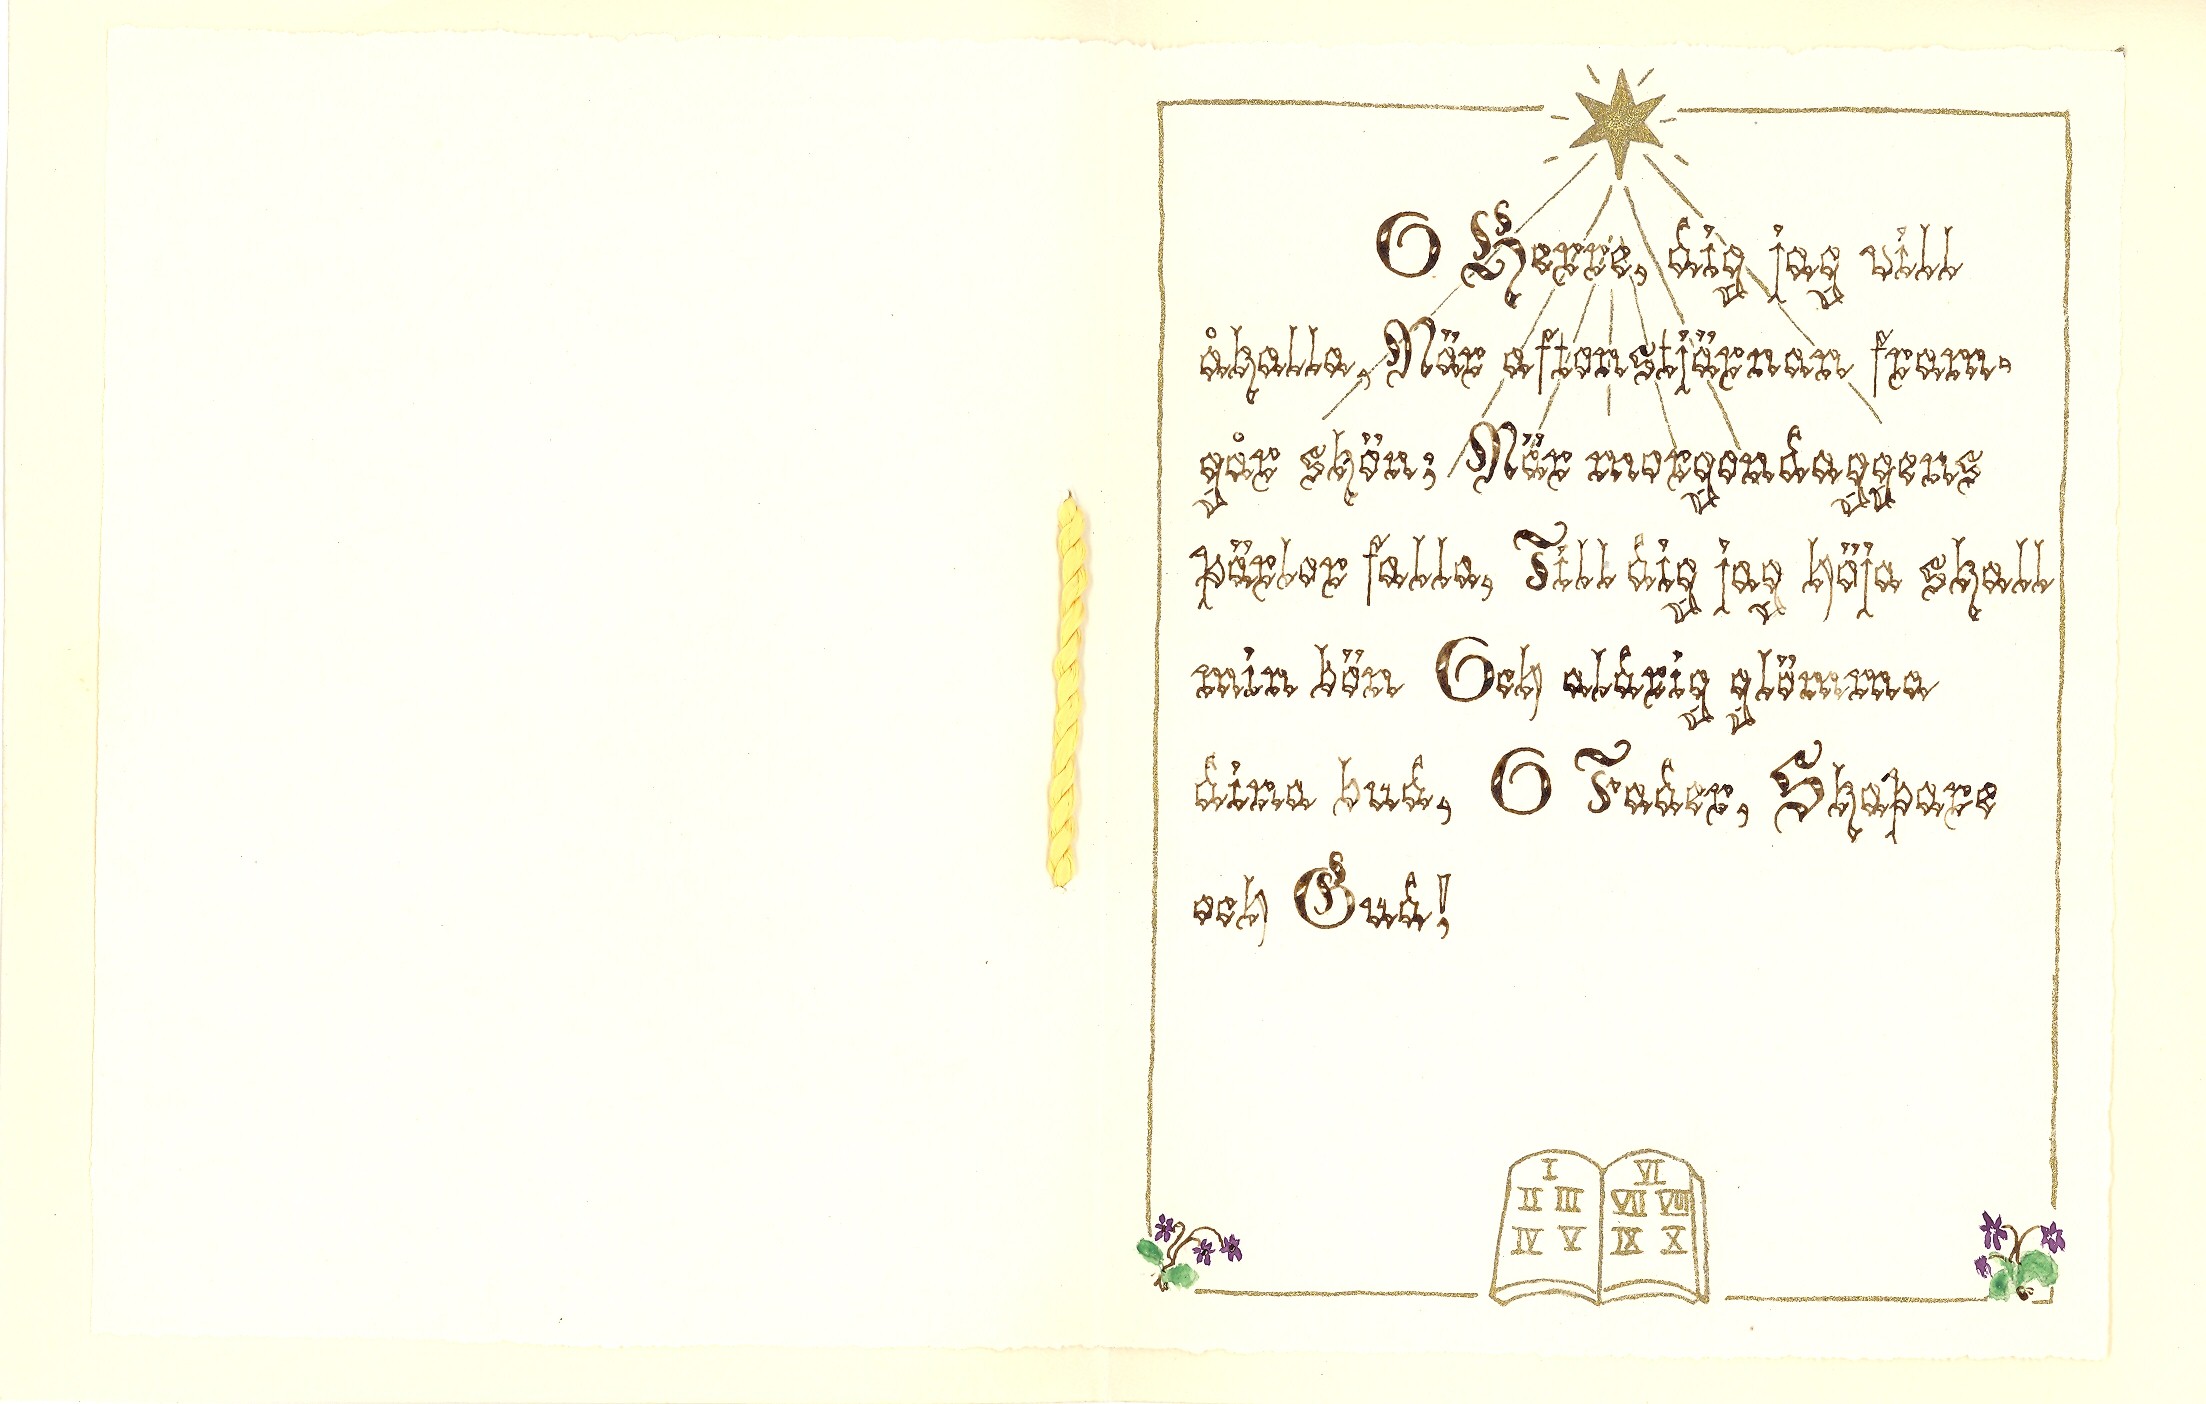 O Herre, dig jag vill
åkalla, När aftonstjärnan fram-
går skön; När morgondaggens
pärlor falla, Till dig jag höja skall
min bön Och aldrig glömma
dina bud, O Fader, Skapare
och Gud!
I VI
II III VII VIII
IV V IX X